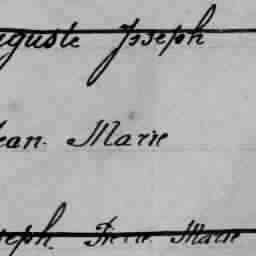 uguste Joseph
ean. Marie
seph. Pierre Marie